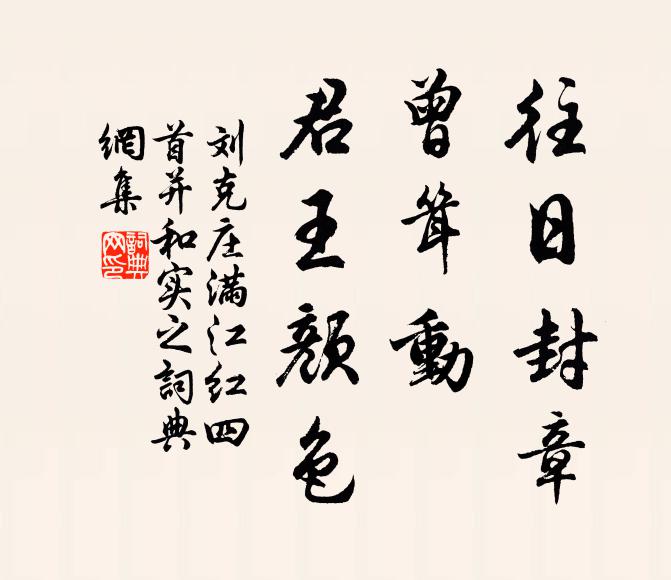 往日封章
曾耸動
君王顏色
刘克庄满江红四
首并和实之詞典
網集
詞典
网印